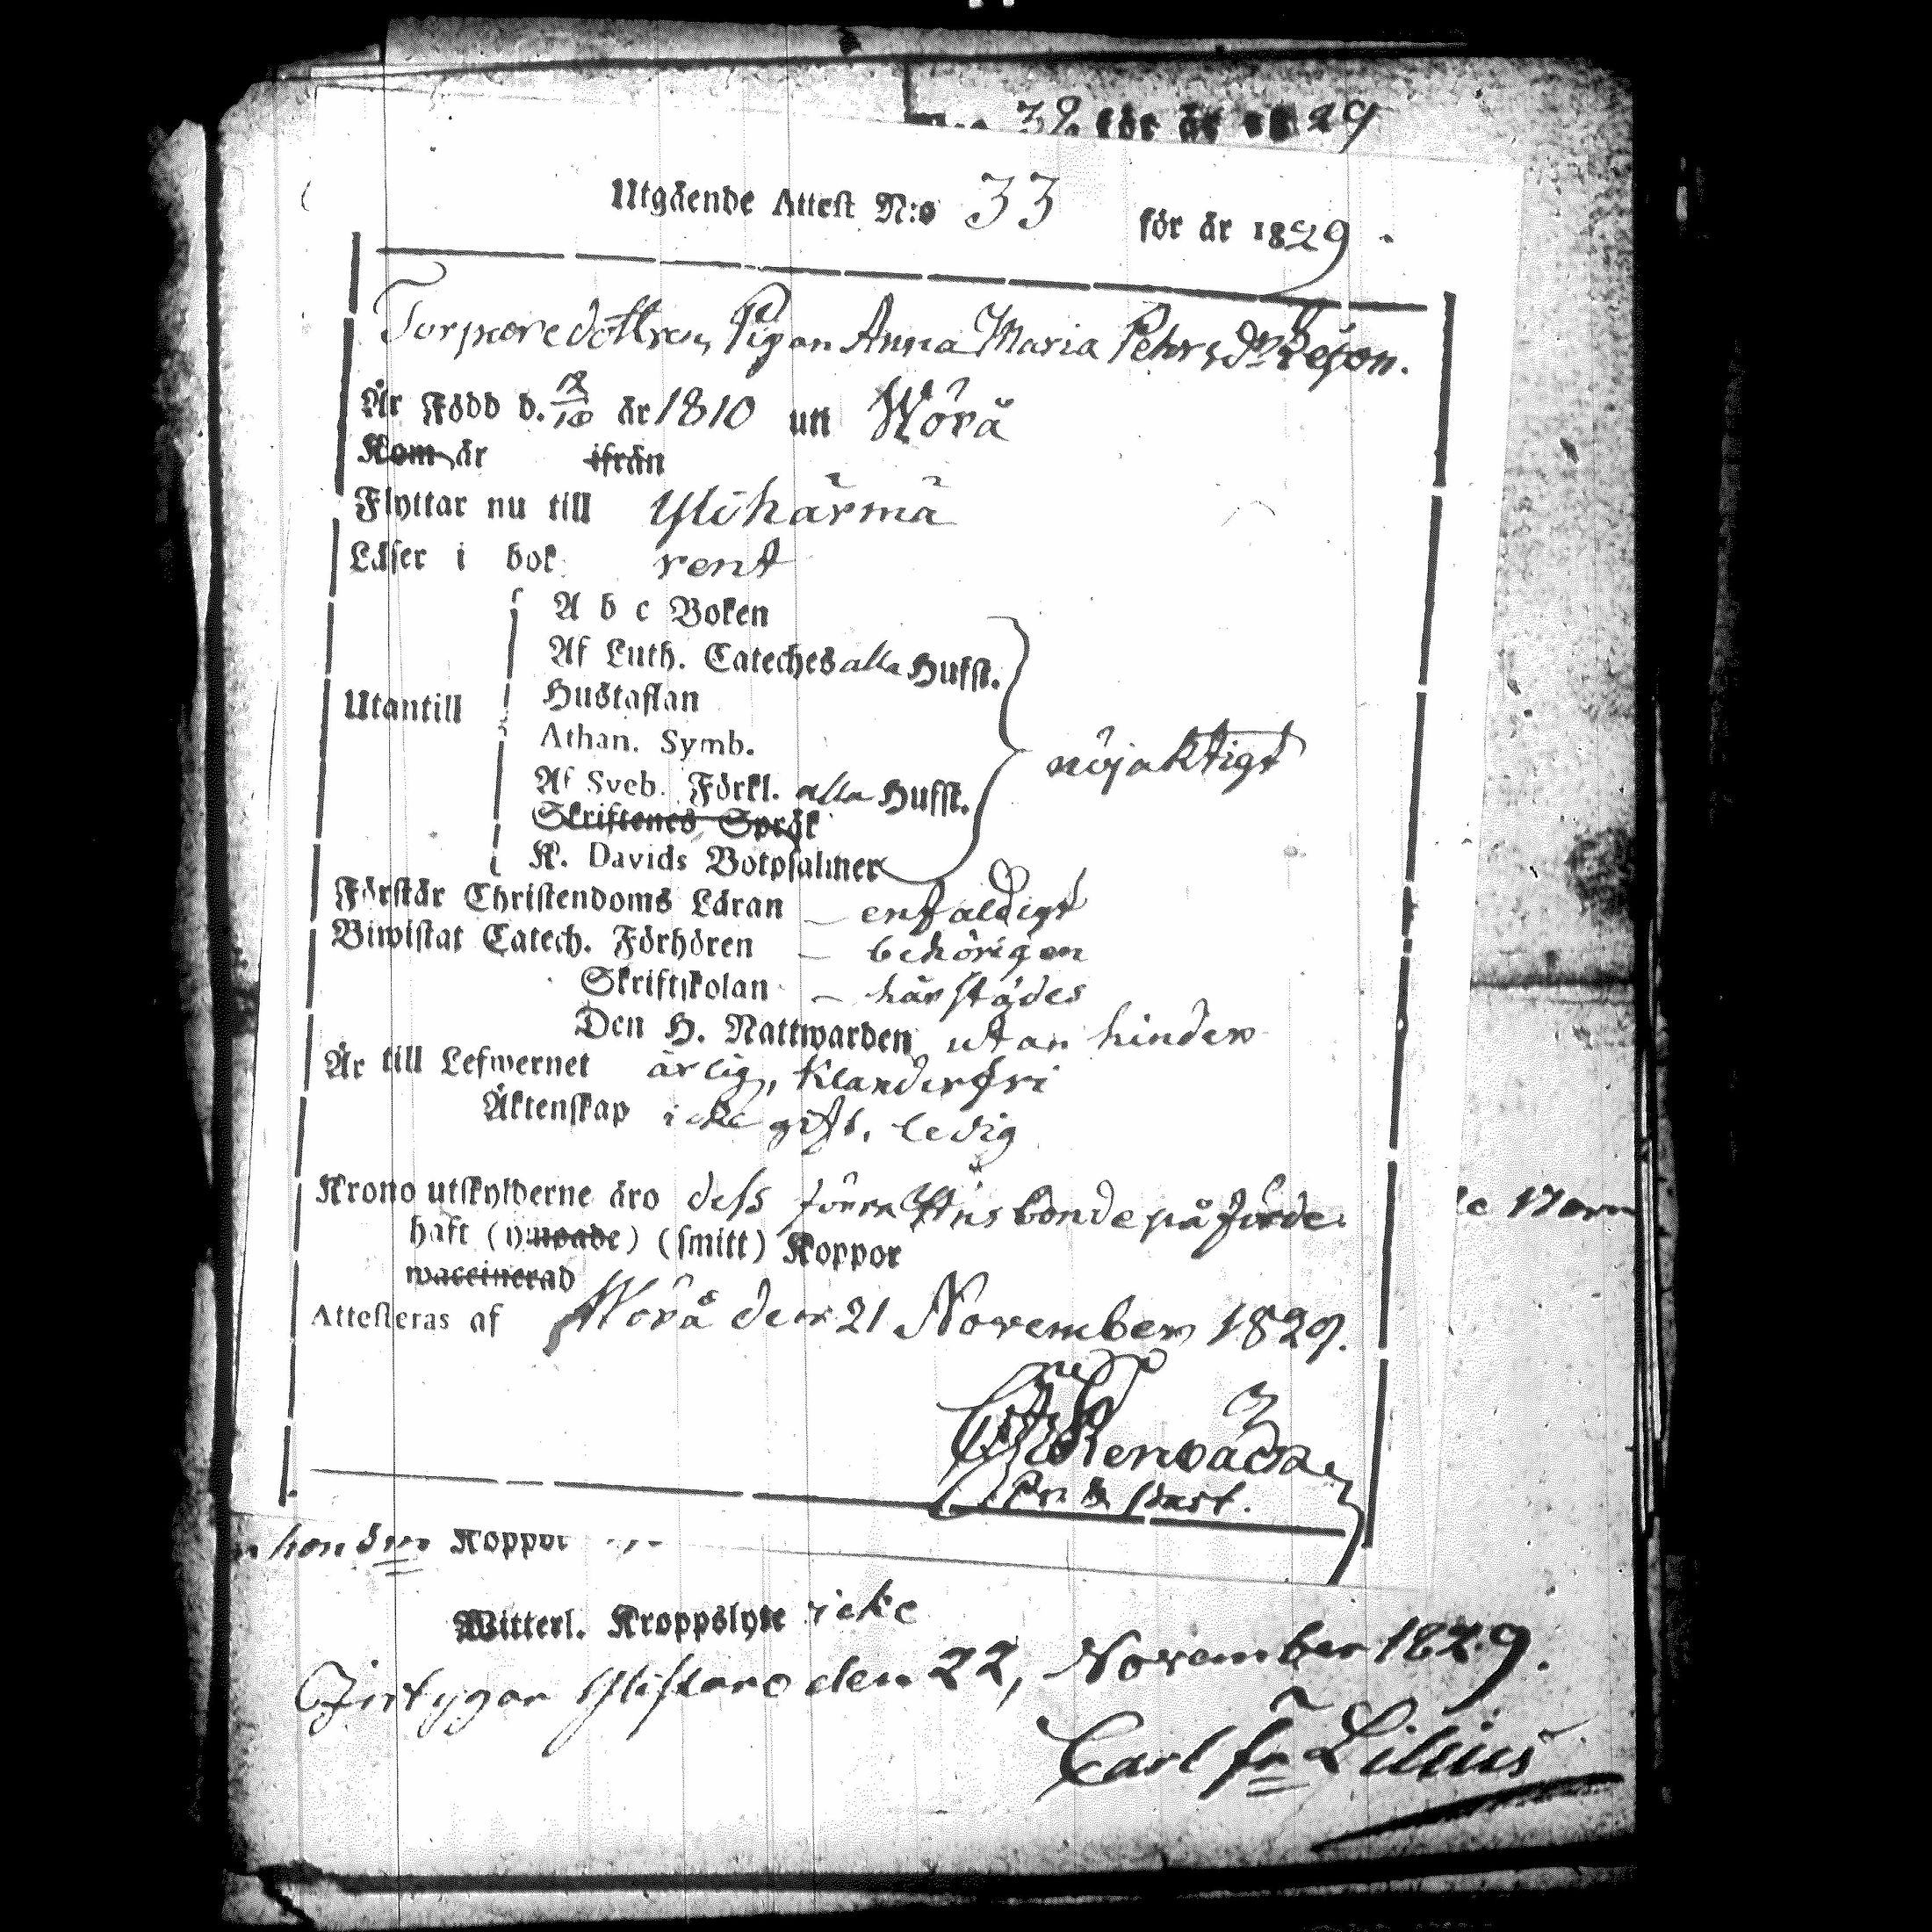 32 för år 1829
Utgående Attest N:o 33 för år 1829.
Torparedottren, Pigan Anna Maria Petersdr
Är Född d. år 1810 uti Wörå
Kom år ifrån
Flyttar nu till Ylihärmä
Läser i bok rent
A b c Boken
Af Luth. Cateches alla Hufst.
Utantill
Hustaflan
Athan. Symb.
Af Sveb. Förkl. alla Hufst.
nöjaktigt
Skriftenes Språk
K. Davids Botpsalmer
Förstår Christendoms Läran – enfaldigt
Biwistat Catech. Förhören – behörigen
Skriftskolan – härstädes
Den H. Nattwarden utan hinder
Är till Lefwernet ärlig, klanderfri
Äktenskap icke gift, ledig
Krono utskylderne äro dess förra Husbonde påförde
haft (ympade) (smitt) Koppor
waccinerad
Attesteras af Wörå den 21 November 1829.
Past.
Koppor
Witterl. Kroppslyte icke
Betygar Ylistaro den 22, November 1829.
Carl Fr Lilius